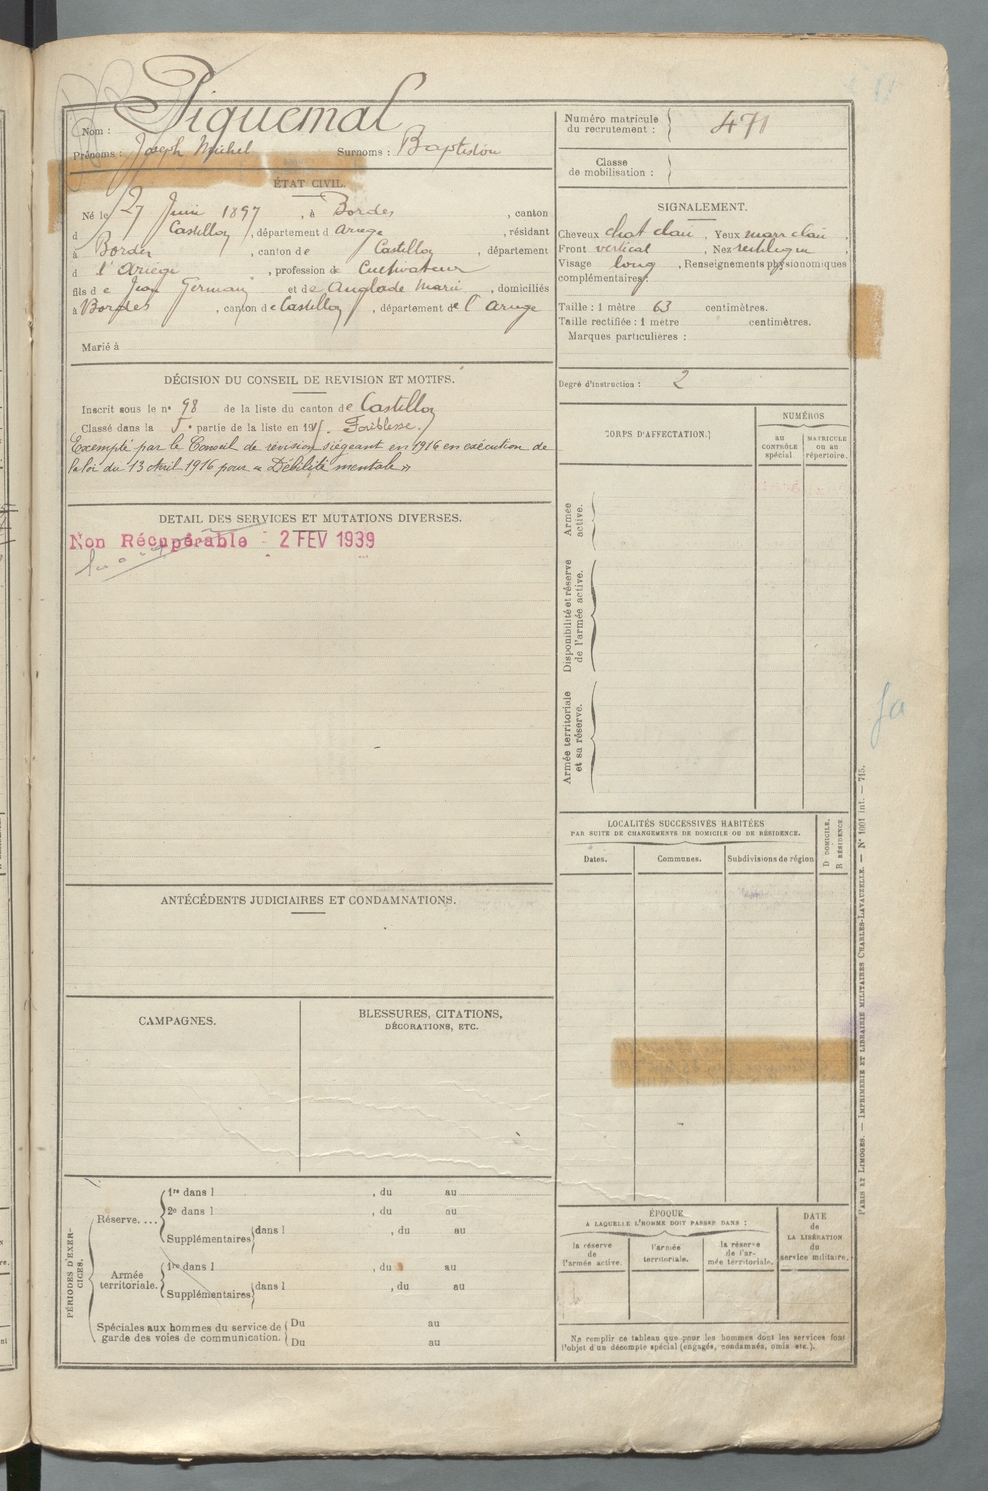 Nom : Piquemal
Prénoms : Joseph Michel Surnoms : Baptistou
Numéro matricule du recrutement : 471
Classe de mobilisation :
ÉTAT CIVIL.
Né le 27 Juin 1897, à Bordes, canton
d Castillon, département d Ariège, résidant
à Bordes, canton de Castillon, département
d l'Ariège, profession de Cultivateur
fils de Jean Germain et de Anglade Marie, domiciliés
à Bordes, canton de Castillon, département de l'Ariège
Marié à
SIGNALEMENT.
Cheveux chat clair, Yeux marr clair,
Front vertical, Nez rectiligne,
Visage long, Renseignements physionomiques
complémentaires:
Taille : 1 mètre 63 centimètres.
Taille rectifiée : 1 mètre centimètres.
Marques particulières :
Degré d'instruction : 2
DÉCISION DU CONSEIL DE REVISION ET MOTIFS.
Inscrit sous le n° 98 de la liste du canton de Castillon
Classé dans la 5e partie de la liste en 191 . Faiblesse.
Exempté par le Conseil de révision siégeant en 1916 en exécution de
la loi du 13 Avril 1916 pour « Débilité mentale »
DETAIL DES SERVICES ET MUTATIONS DIVERSES.
Non Récupérable - 2 FEV 1939
CORPS D'AFFECTATION.
NUMÉROS
au CONTRÔLE spécial.
MATRICULE ou au répertoire.
Armée active.
Disponibilité et réserve de l'armée active.
Armée territoriale et sa réserve.
LOCALITÉS SUCCESSIVES HABITÉES
PAR SUITE DE CHANGEMENTS DE DOMICILE OU DE RÉSIDENCE.
Dates. Communes. Subdivisions de région
D DOMICILE.
R RÉSIDENCE
ANTÉCÉDENTS JUDICIAIRES ET CONDAMNATIONS.
CAMPAGNES.
BLESSURES, CITATIONS,
DÉCORATIONS, ETC.
PÉRIODES D'EXERCICES.
Réserve....
1re dans l , du au
2e dans l , du au
Supplémentaires dans l , du au
Armée territoriale.
1re dans l , du au
Supplémentaires dans l , du au
Spéciales aux hommes du service de garde des voies de communication.
Du au
Du au
ÉPOQUE
A LAQUELLE L'HOMME DOIT PASSER DANS :
la réserve de l'armée active.
l'armée territoriale.
la réserve de l'armée territoriale.
DATE de LA LIBÉRATION du service militaire.
Ne remplir ce tableau que pour les hommes dont les services font
l'objet d'un décompte spécial (engagés, condamnés, omis etc.).
PARIS ET LIMOGES. — IMPRIMERIE ET LIBRAIRIE MILITAIRES CHARLES-LAVAUZELLE. — N° 1001 int. — 715.